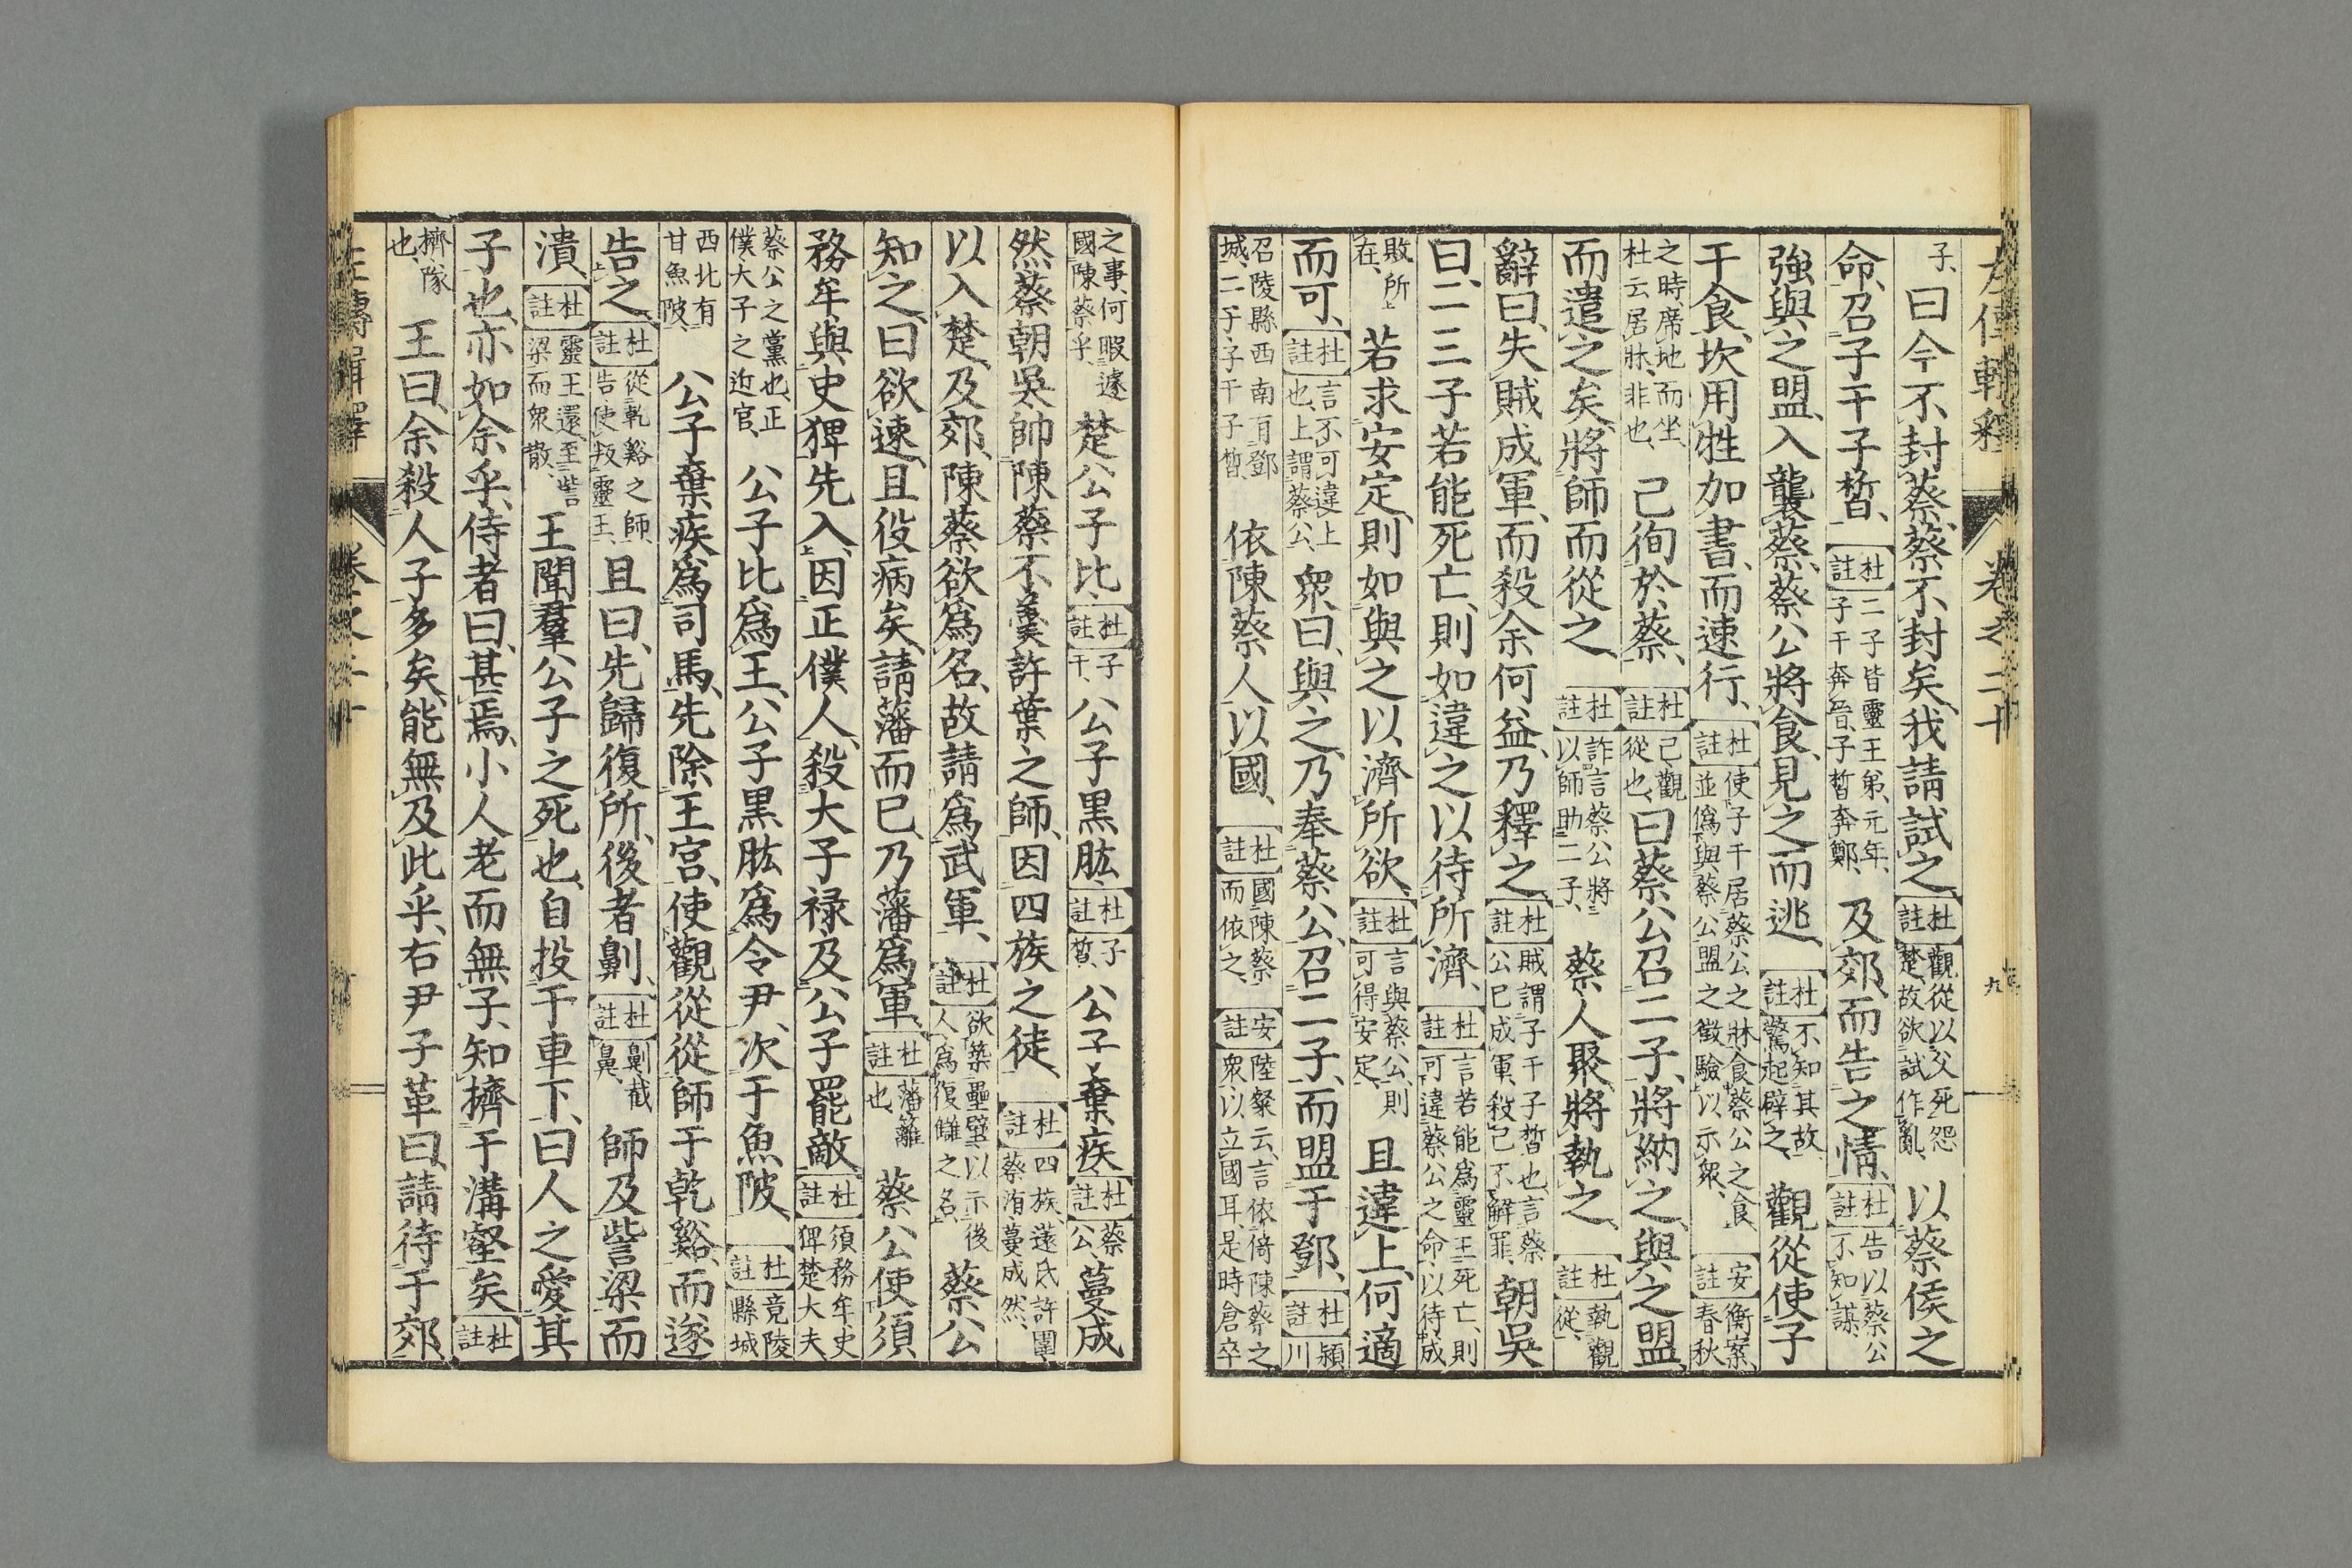 左傳輯釋 卷之二十 九
子、曰今不封蔡、蔡不封矣、我請試之、杜註觀從以父死怨楚、故欲試作亂、以蔡侯之
命、召子干子皙、杜註二子皆靈王弟、元年、子干奔晉、子皙奔鄭、及郊、而告之情、杜註告以蔡公不知謀、
強與之盟、入襲蔡、蔡公將食、見之而逃、杜註不知其故、驚起辟之、觀從使子
干食、坎用牲加書、而速行、杜註使子干居蔡公之牀、食蔡公之食、並僞與蔡公盟之徵驗、以示衆、安註衡案、春秋
之時、席地而坐、杜云居牀、非也、己徇於蔡、杜註己觀從也、曰蔡公召二子、將納之、與之盟、
而遣之矣、將師而從之、杜註詐言蔡公將以師助二子、蔡人聚、將執之、杜註執觀從、
辭曰、失賊成軍、而殺余何益、乃釋之、杜註賊謂子干子皙也、言蔡公已成軍、殺己不解罪、朝吳
曰、二三子若能死亡、則如違之以待所濟、杜註言若能爲靈王死亡、則可違蔡公之命、以待成
敗所在、若求安定、則如與之以濟所欲、杜註言與蔡公、則可得安定、且違上、何適
而可、杜註言不可違上也、上謂蔡公、衆曰、與之、乃奉蔡公、召二子、而盟于鄧、杜註潁川
召陵縣西南有鄧城、二子、子干子皙、依陳蔡人以國、杜註國陳蔡而依之、安註陸粲云、言依倚陳蔡之衆、以立國耳、是時倉卒
之事、何暇遽國陳蔡乎、楚公子比、杜註子干、公子黑肱、杜註子皙、公子棄疾、杜註蔡公、蔓成
然、蔡朝吳、帥陳蔡不羹許葉之師、因四族之徒、杜註四族、薳氏許圍、蔡洧蔓成然、
以入楚、及郊、陳蔡欲爲名、故請爲武軍、杜註欲築壘壁、以示後人、爲復讎之名、蔡公
知之、曰欲速、且役病矣、請藩而已、乃藩爲軍、杜註藩籬也、蔡公使須
務牟與史猈先入、因正僕人、殺大子祿及公子罷敵、杜註須務牟史猈楚大夫
蔡公之黨也、正僕、大子之近官、公子比爲王、公子黑肱爲令尹、次于魚陂、杜註竟陵縣城
西北有甘魚陂、公子棄疾爲司馬、先除王宮、使觀從從師于乾谿、而遂
告之、杜註從乾谿之師、告使叛靈王、且曰、先歸復所、後者劓、杜註劓截鼻、師及訾梁而
潰、杜註靈王還至訾梁而衆散、王聞羣公子之死也、自投于車下、曰人之愛其
子也、亦如余乎、侍者曰、甚焉、小人老而無子、知擠于溝壑矣、杜註
擠、隊也、王曰、余殺人子多矣、能無及此乎、右尹子革曰、請待于郊、
左傳輯釋 卷之二十